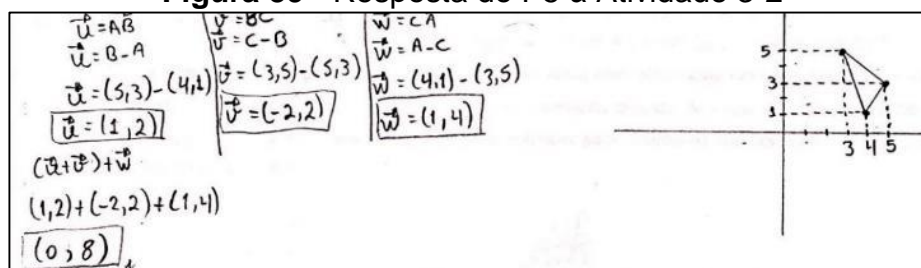 Resposta de
a Atividade
u⃗ = AB
u⃗ = B - A
u⃗ = (5,3) - (4,1)
u⃗ = (1,2)
v⃗ = BC
v⃗ = C - B
v⃗ = (3,5) - (5,3)
v⃗ = (-2,2)
w⃗ = CA
w⃗ = A - C
w⃗ = (4,1) - (3,5)
w⃗ = (1,4)
(u⃗+v⃗)+w⃗
(1,2)+(-2,2)+(1,4)
(0,8)
5
3
1
3 4 5